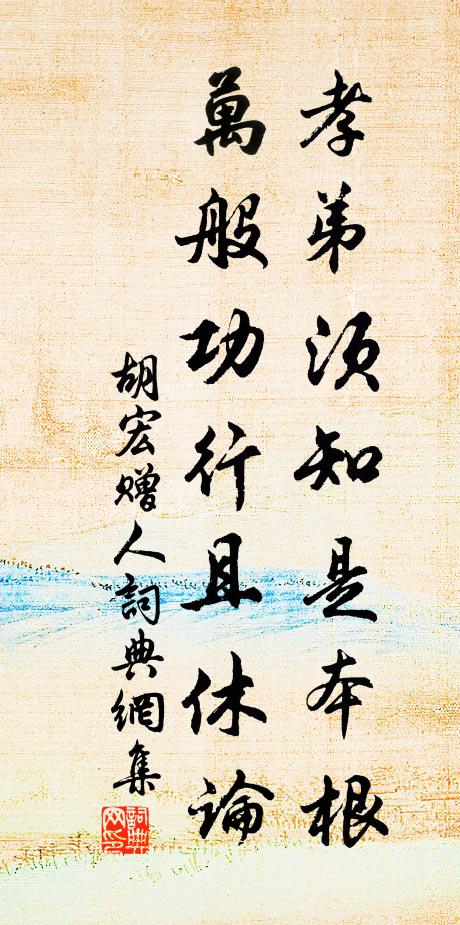 孝弟須知是本根
萬般功行且休論
胡宏贈人詞典網集
詞典網印